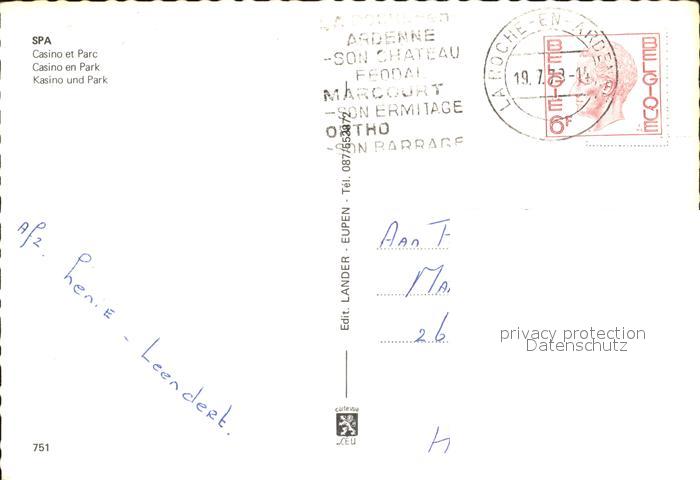 SPA
Casino et Parc
Casino en Park
Kasino und Park
LA ROCHE-EN
ARDENNE
-SON CHATEAU
FEODAL
MARCOURT
-SON ERMITAGE
ORTHO
-SON BARRAGE
LA ROCHE-EN-ARDENNE
19.7.73-14
BELGIE
BELGIQUE
6F
Edit. LANDER - EUPEN - Tél. 087/
Afz.
Leendert.
Aan
26
privacy protection
Datenschutz
751